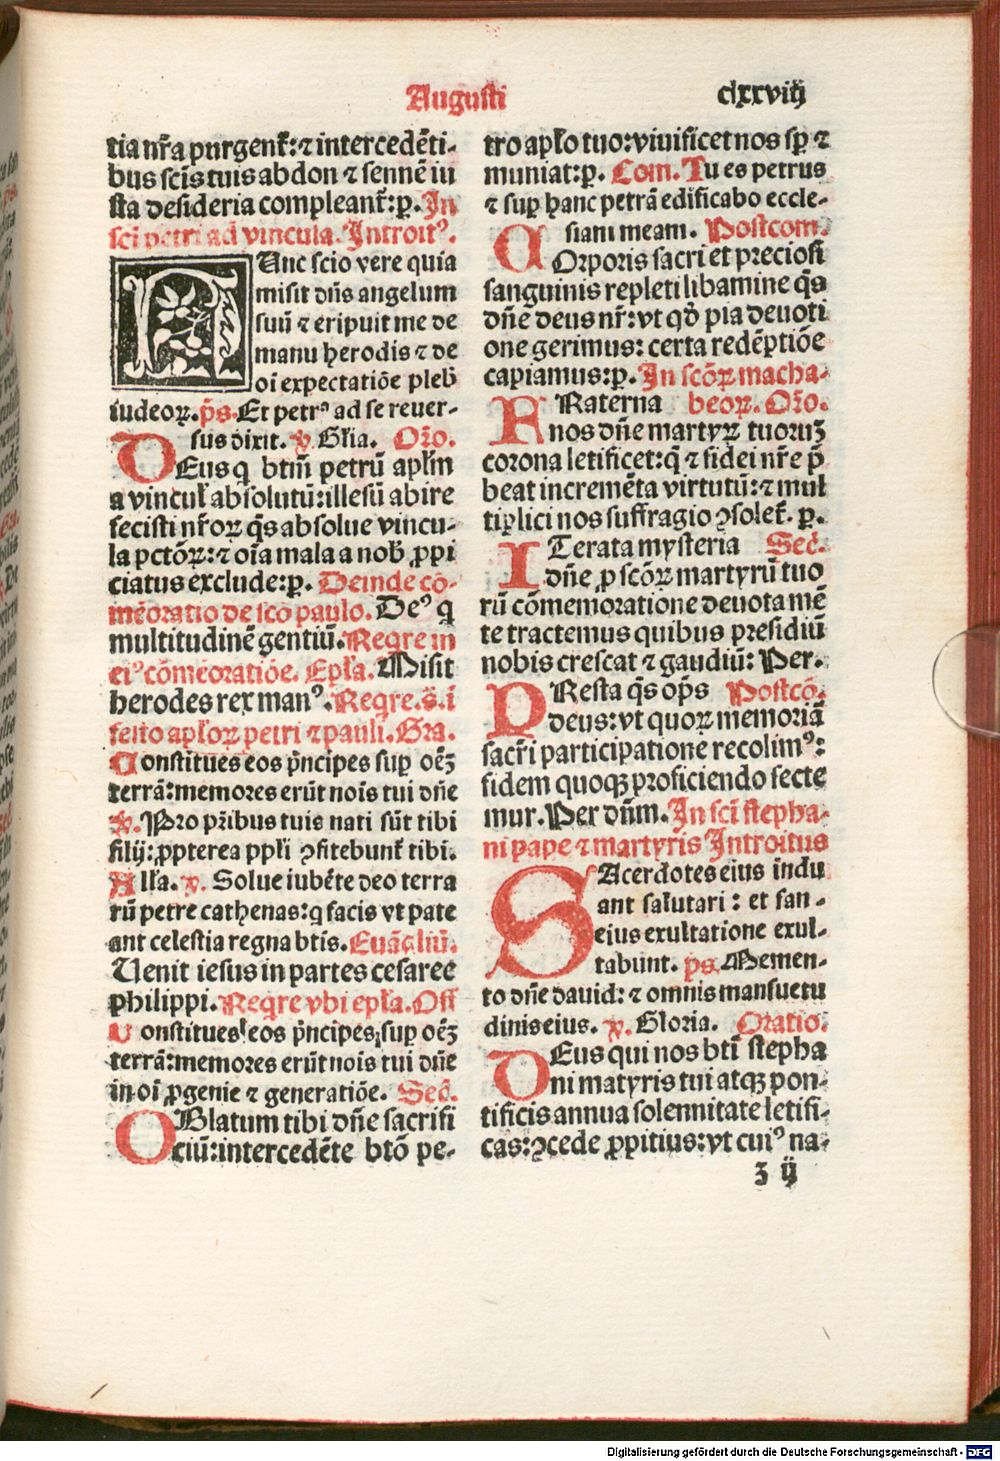 Augusti
clxxviij
tia nr̃a purgent᷑: ⁊ intercedẽti-
bus scis̃ tuis abdon ⁊ sennẽ iu
sta desideria compleant᷑: ꝑ. In
sc̃i petri ad vincula. Introitꝰ.
Nunc scio vere quia
misit dñs angelum
suũ ⁊ eripuit me de
manu herodis ⁊ de
oĩ expectatiõe pleb̃
iudeoꝝ. p̃s. Et petrꝰ ad se reuer-
sus dixit. ℣. Gl̃ia. Or̃o.
DEus q btm̃ petrũ apl̃m
a vincul̃ absolutũ: illesũ abire
fecisti nr̃oꝝ q̃s absolue vincu-
la pctõꝝ: ⁊ oĩa mala a nob̃ ꝓpi
ciatus exclude: ꝑ. Deinde cõ-
mẽoratio de sco paulo. Deꝰ q
multitudinẽ gentiũ. Reqre in
eiꝰ cõmẽoratiõe. Epl̃a. Misit
herodes rex manꝰ. Reqre. s̃. ĩ
festo apl̃oꝝ petri ⁊ pauli. Gra.
Constitues eos p̃ncipes suꝑ oẽʒ
terrã: memores erũt nois̃ tui dñe
℣. Pro pr̃ibus tuis nati sũt tibi
filij: ꝓpterea ppl̃i ꝯfitebunt᷑ tibi.
All̃a. ℣. Solue iubẽte deo terra
rũ petre cathenas: q facis vt pate
ant celestia regna btĩs. Euãgliũ.
Uenit iesus in partes cesaree
philippi. Reqre vbi epl̃a. Off̃
Constitues eos p̃ncipes suꝑ oẽʒ
terrã: memores erũt nois̃ tui dñe
in oĩ ꝓgenie ⁊ generatiõe. Sec̃.
OBlatum tibi dñe sacrifi
ciũ: intercedẽte btõ pe-
tro apl̃o tuo: viuificet nos sꝑ ⁊
muniat: ꝑ. Com. Tu es petrus
⁊ suꝑ hanc petrã edificabo eccle-
siam meam. Postcom.
COrporis sacri et preciosi
sanguinis repleti libamine q̃s
dñe deus nr̃: vt qd̃ pia deuoti
one gerimus: certa redẽptiõe
capiamus: ꝑ. In scõꝝ macha-
FRaterna beoꝝ. Or̃o.
nos dñe martyꝝ tuoruʒ
corona letificet: q̃ ⁊ fidei nr̃e p̃
beat incremẽta virtutũ: ⁊ mul
tiplici nos suffragio ꝯsolet᷑. ꝑ.
ITerata mysteria Sec̃.
dñe ꝓ scõꝝ martyrũ tuo
rũ cõmemoratione deuota mẽ
te tractemus quibus presidiũ
nobis crescat ⁊ gaudiũ: Per.
PResta q̃s op̃s Postcõ.
deus: vt quoꝝ memoriã
sacr̃i participatione recolimꝰ:
fidem quoqꝫ proficiendo secte
mur. Per dñm. In sci̇̃ stepha-
ni pape ⁊ martyris Introitus
SAcerdotes eius indu
ant salutari: et san-
ci eius exultatione exul-
tabunt. ps. Memen-
to dñe dauid: ⁊ omnis mansuetu
dinis eius. ℣. Gloria. Oratio.
DEus qui nos btĩ stepha
ni matyris tui atqꝫ pon-
tificis annua solennitate letifi-
cas: ꝯcede ꝓpitius: vt cuiꝰ na-
ʒ ij
Digitalisierung gefördert durch die Deutsche Forschungsgemeinschaft - DFG